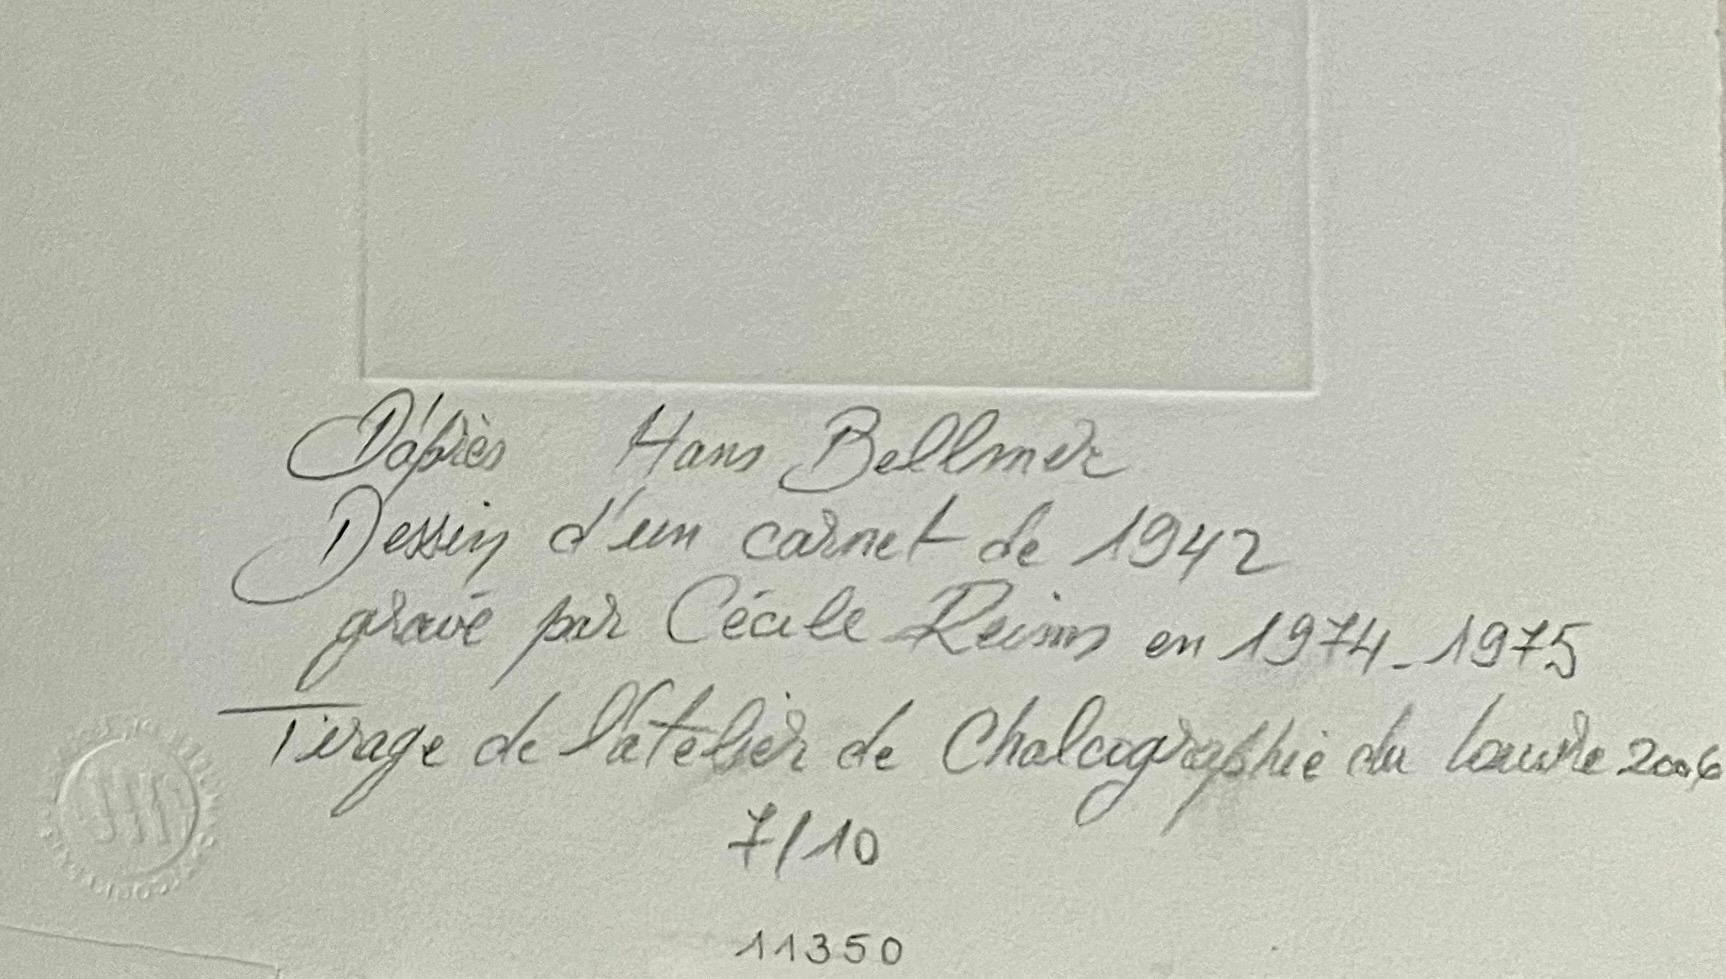 D'après Hans Bellmer
Dessin d'un carnet de 1942
gravé par Cécile Reims en 1974-1975
Tirage de l'atelier de Chalcographie du Louvre 2006
7/10
11350